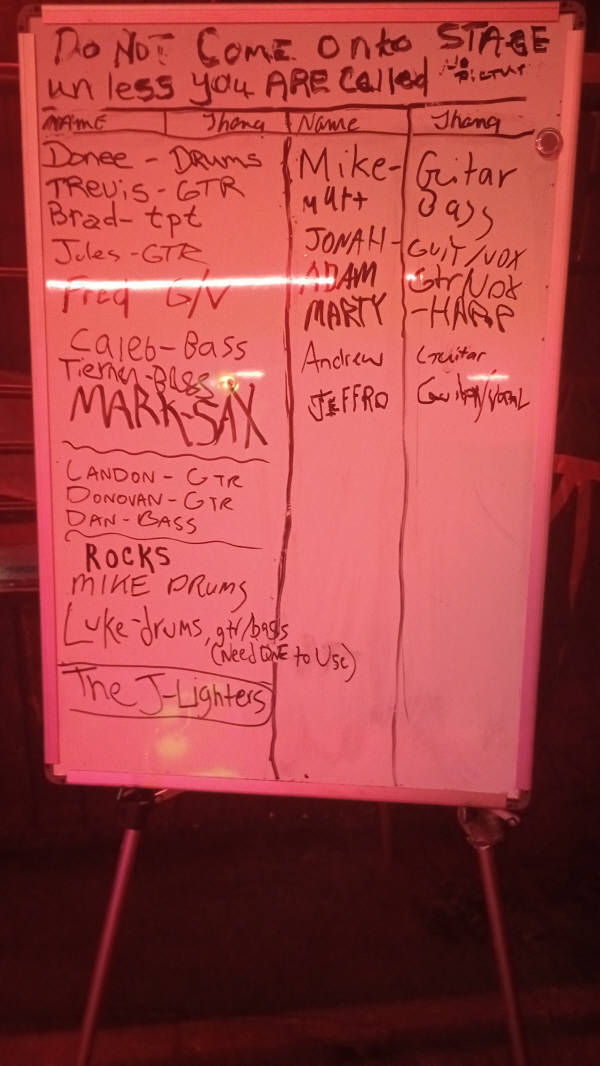 Do Not Come onto STAGE
unless you ARE Called
NO PICTURE
NAME Thang Name Thang
Donee - DRUMS
TREVIS - GTR
Brad - tpt
Jules - GTR
Fred G/V
Caleb - Bass
Tiernan - Bass
MARK - SAX
LANDON - GTR
DONOVAN - GTR
DAN - BASS
ROCKS
MIKE DRUMS
Luke - drums, gtr/bass
(Need ONE to Use)
The J-Lighters
Mike - Guitar
Matt Bass
JONAH - GUIT/VOX
ADAM Gtr/VOX
MARTY - HARP
Andrew Guitar
JEFFRO Guitar/Vocal